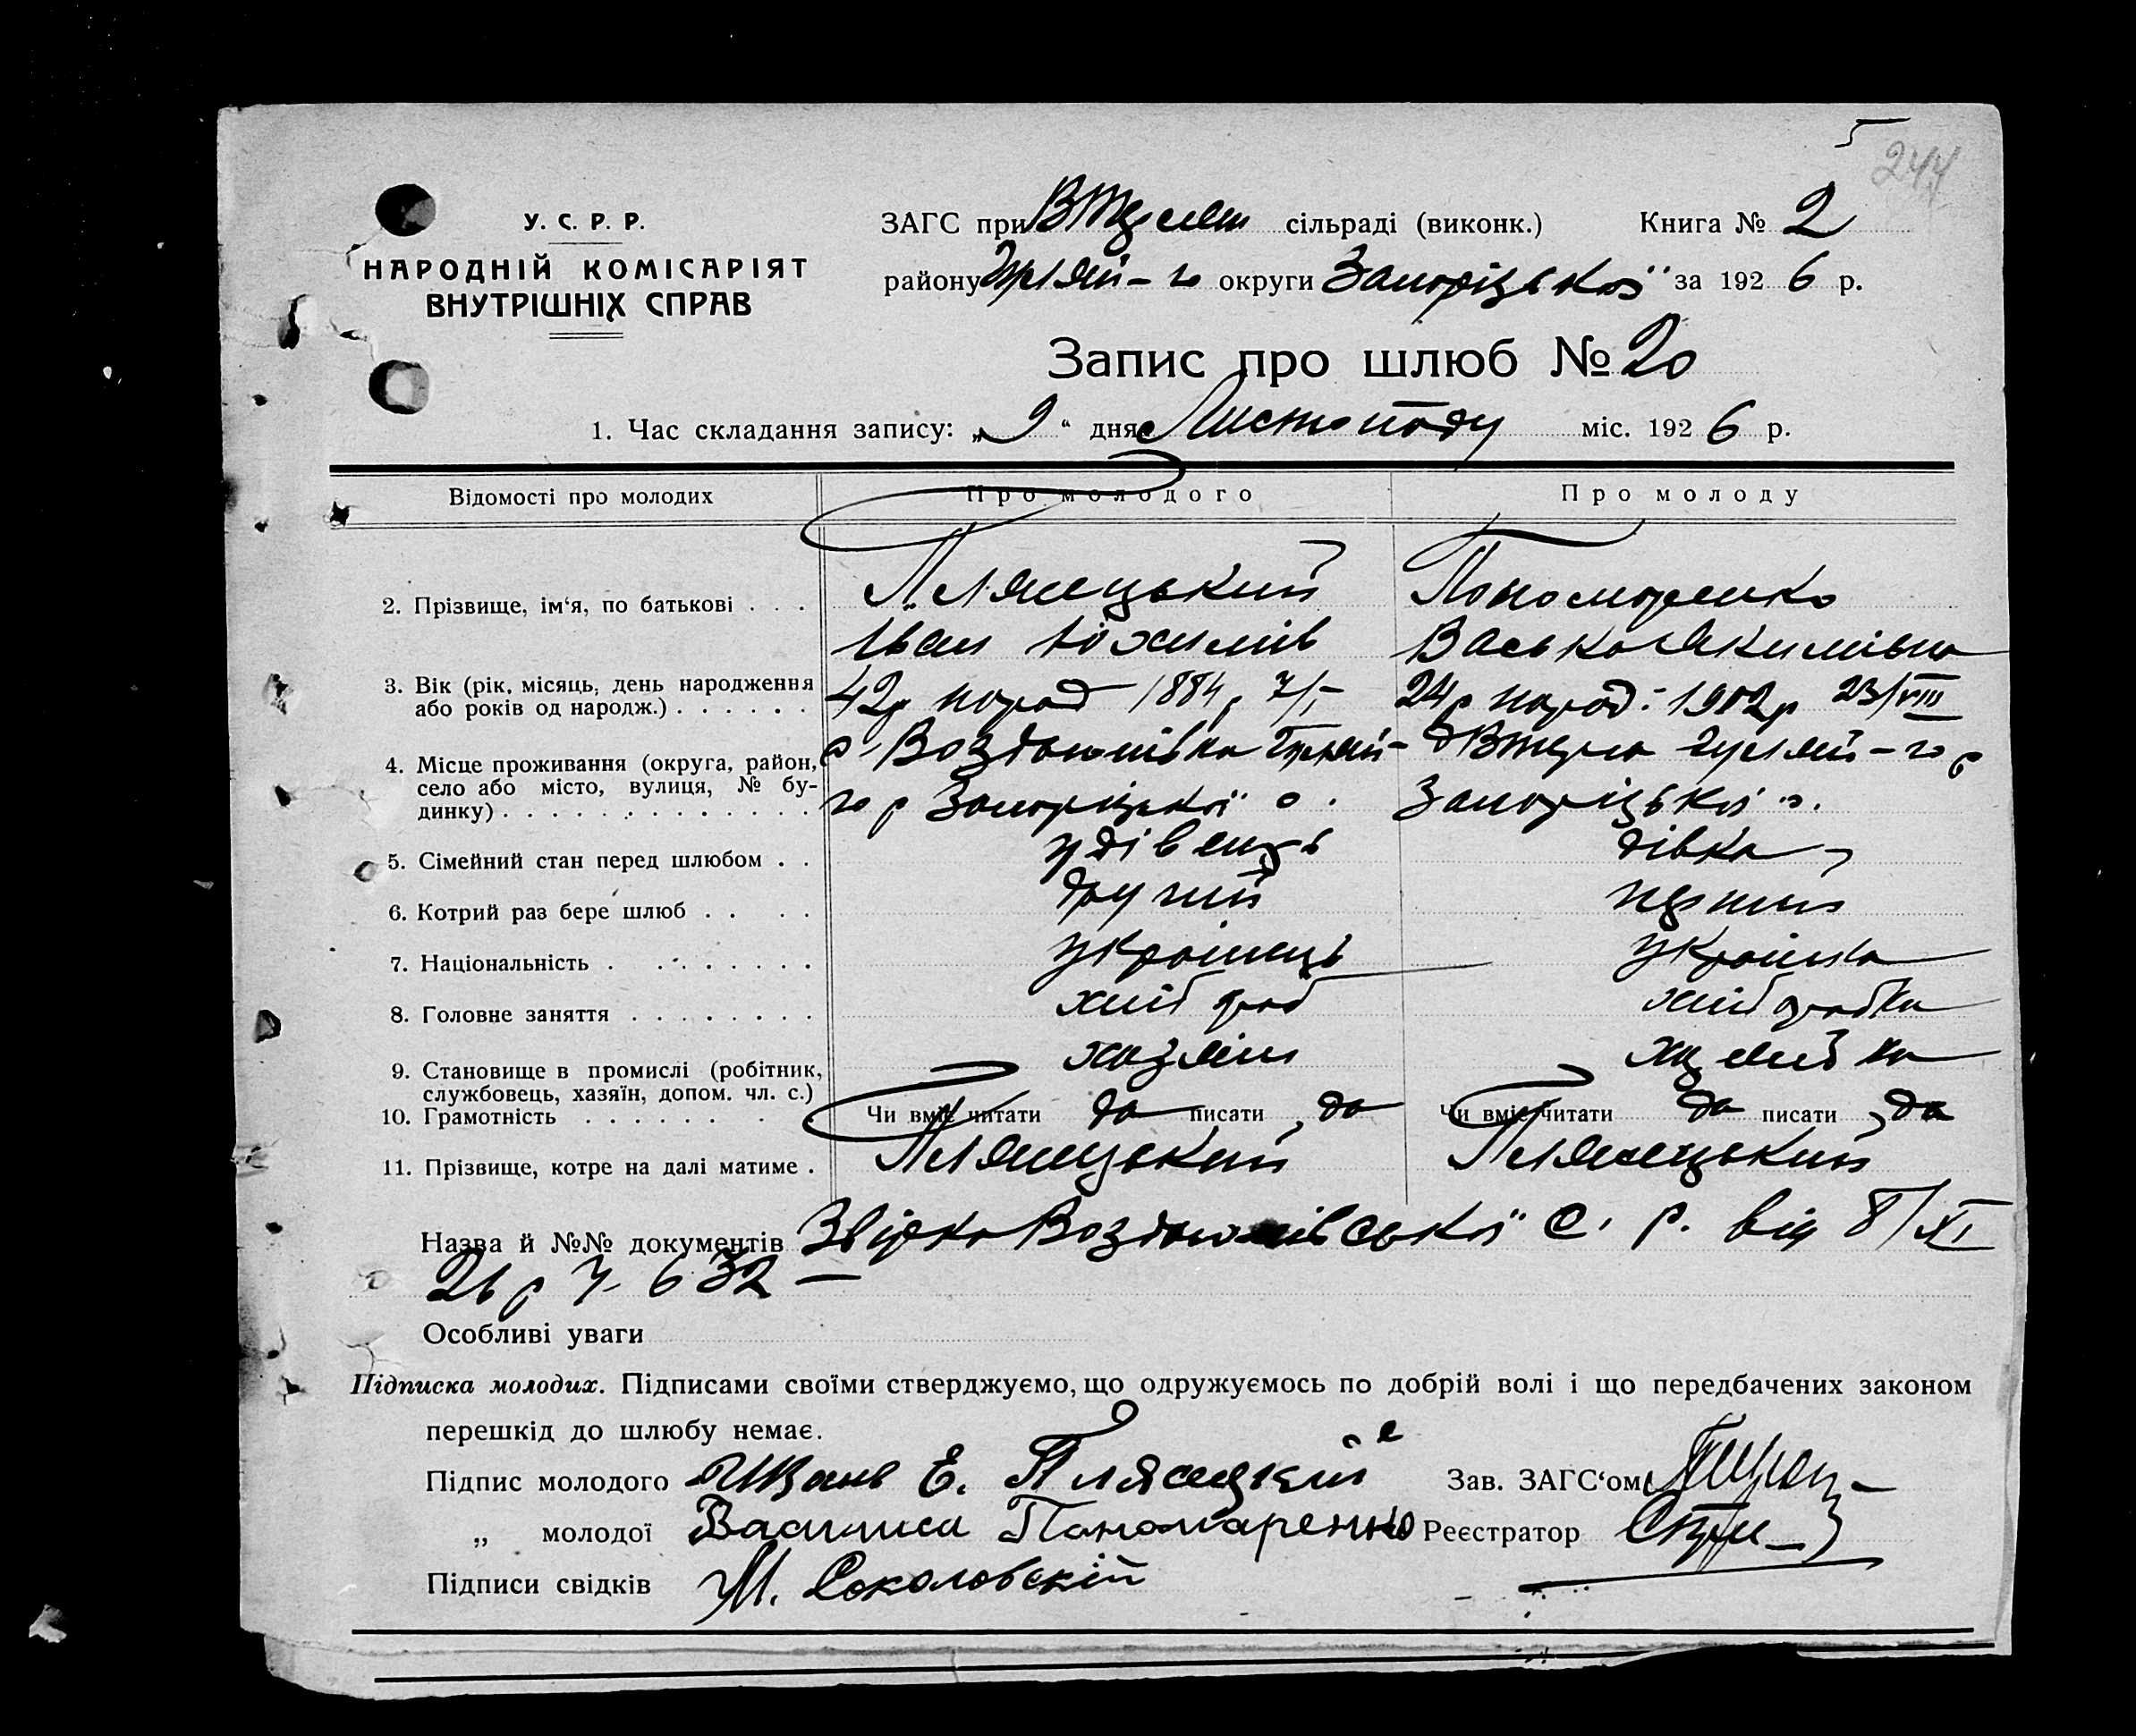 5
244
У. С. Р. Р.
НАРОДНІЙ КОМІСАРІЯТ
ВНУТРІШНІХ СПРАВ
ЗАГС при сільраді (виконк.) Книга № 2
району округи Запоріцької за 1926 р.
Запис про шлюб № 20
1. Час складання запису: „9“ дня Листопаду міс. 1926 р.
Відомості про молодих Про молодого Про молоду
2. Прізвище, ім‘я, по батькові . . . Пляшецький Пономаренко
Іван Юхимів Васька Якимівна
3. Вік (рік, місяць, день народження 42 р народ 1884 р 7/I 24 р народ. 1902 р 23/VIII
або років од народж.) . . . . . .
4. Місце проживання (округа, район, с. Воздвижівка
село або місто, вулиця, № бу-
динку) . . . . . . . . . . . . . го р Запоріцької о. Запоріцької о.
5. Сімейний стан перед шлюбом . . удівець дівка
6. Котрий раз бере шлюб . . . . другий перший
7. Національність . . . . . . . . українець українка
8. Головне заняття . . . . . . . . хлібороб хліборобка
9. Становище в промислі (робітник, хазяїн хазяйка
службовець, хазяїн, допом. чл. с.)
10. Грамотність . . . . . . . Чи вміє читати да писати да Чи вміє читати да писати да
11. Прізвище, котре на далі матиме . Пляшецький Пляшецький
Назва й №№ документів С. Р. від 8/XI
26 р 632
Особливі уваги
Підписка молодих. Підписами своїми стверджуємо, що одружуємось по добрій волі і що передбачених законом
перешкід до шлюбу немає.
Підпис молодого Иванъ Е. Зав. ЗАГС‘ом
„ молодої Василиса Пономаренко Реєстратор
Підписи свідків М. Соколовскій